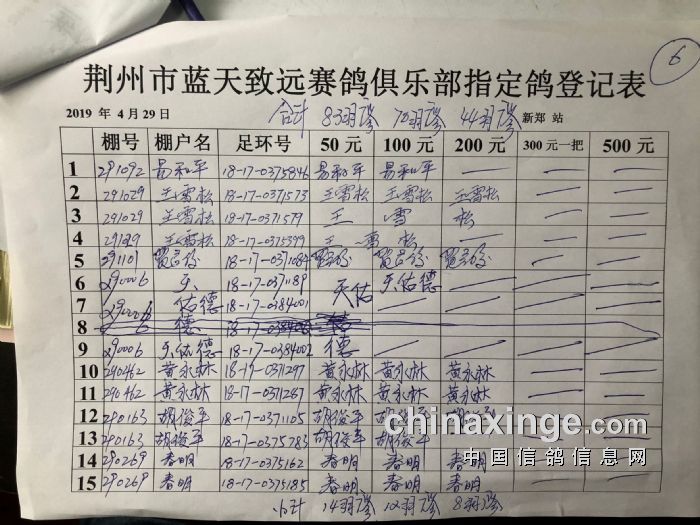 6
荆州市蓝天致远赛鸽俱乐部指定鸽登记表
2019 年 4 月 29 日 合计 83羽 70羽 44羽 新郑 站
棚号 棚户名 足环号 50 元 100 元 200 元 300 元一把 500 元
1 291092 易和平 18-17-0375846 易和平 易和平 — — —
2 291029 王雪松 18-17-0371573 王雪松 王雪松 王雪松 — —
3 291029 王雪松 18-17-0371579 王 雪 松 — —
4 291029 王雪松 18-17-0375399 王 雪 松 — — —
5 291101 18-17-0371084 — —
6 290006 18-17-0371189 天佑 天佑德 — — —
7 290006 佑德 18-17-0384001 — — — —
8 德
9 290006 天佑德 18-17-0384002 德 — — — —
10 290462 黄永林 18-19-0371297 黄永林 黄永林 黄永林 — —
11 290462 黄永林 18-17-0371287 黄永林 黄永林 黄永林 — —
12 290163 胡俊平 18-17-0371105 胡俊平 胡俊平 胡俊平
13 290163 胡俊平 18-17-0375783 胡俊平 胡俊平
14 290269 春明 18-17-0375162 春明 春明 春明
15 290269 春明 18-17-0375185 春明 春明 春明 — —
小计 14羽 12羽 8羽
chinaxinge.com
中国信鸽信息网